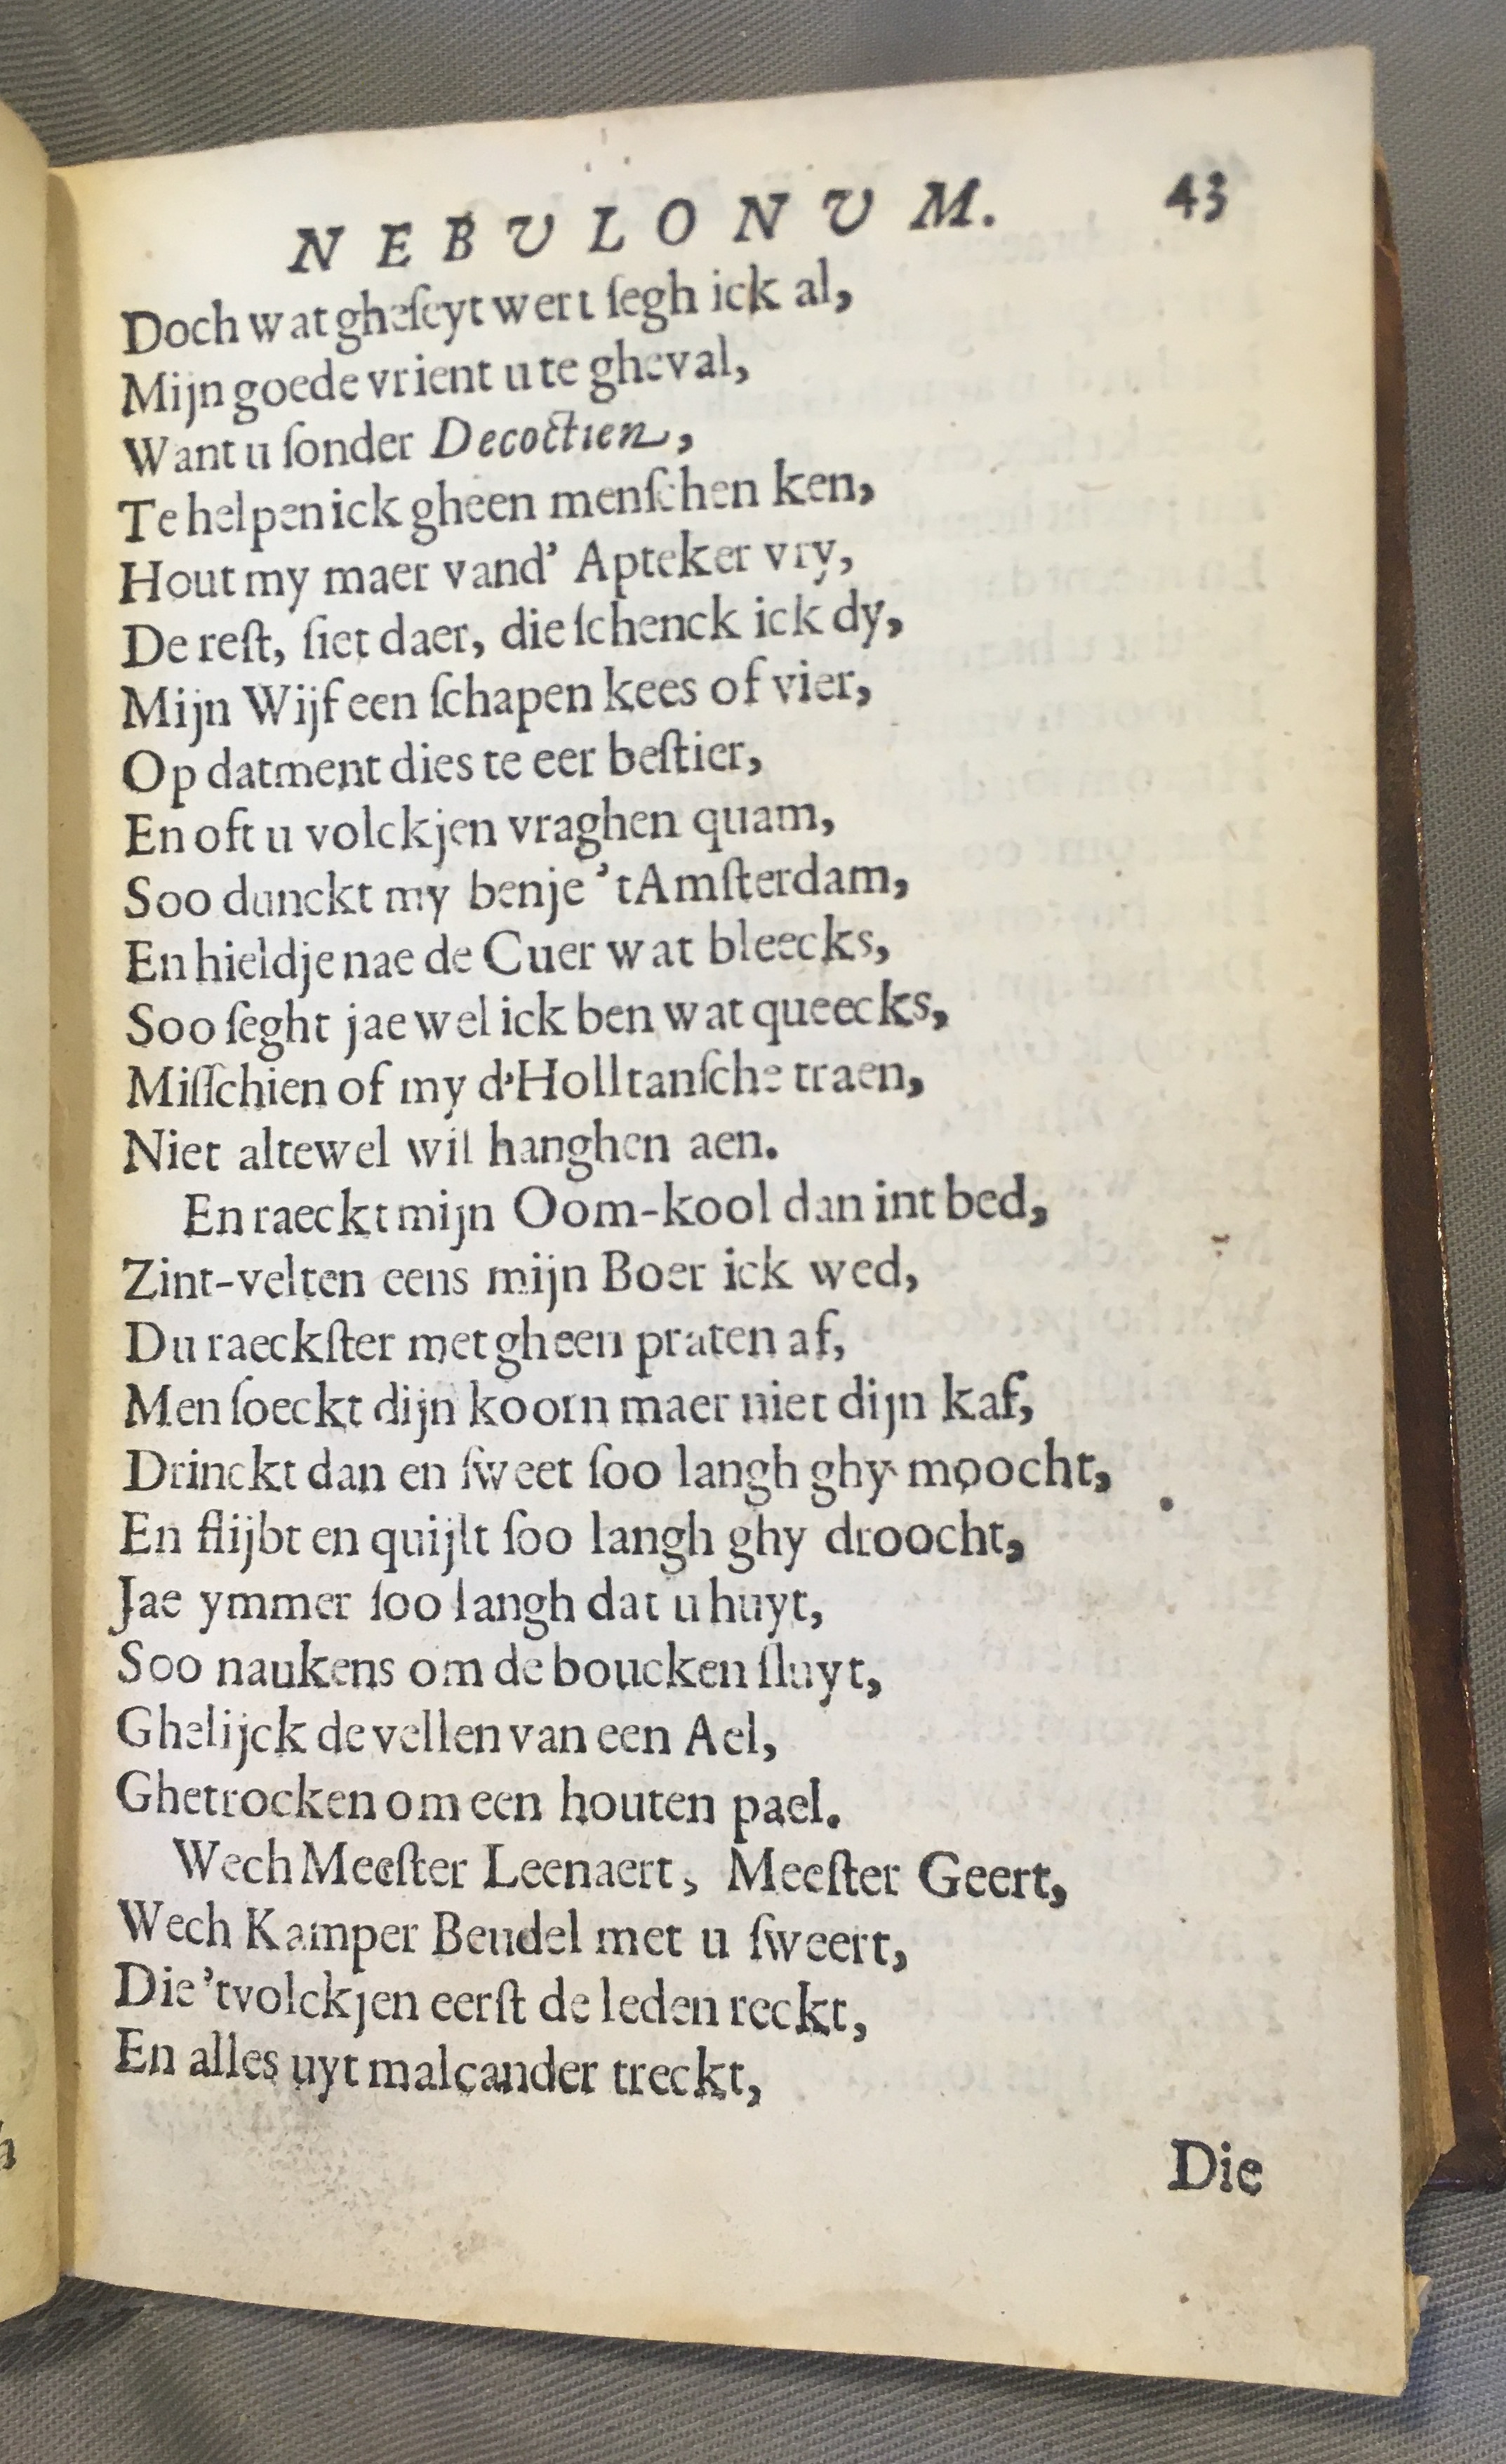 NEBULONUM. 43
Doch wat gheſeyt wert ſegh ick al,
Mijn goede vrient u te gheval,
Want u ſonder Decoctien,
Te helpen ick gheen menſchen ken,
Hout my maer vand' Apteker vry,
De reſt, ſiet daer, die ſchenck ick dy,
Mijn Wijf een ſchapen kees of vier,
Op datment dies te eer beſtier,
En oft u volckjen vraghen quam,
Soo dunckt my benje 't Amſterdam,
En hieldje nae de Cuer wat bleecks,
Soo ſeght jae wel ick ben wat queecks,
Miſſchien of my d'Holltanſche traen,
Niet altewel wil hanghen aen.
En raeckt mijn Oom-kool dan int bed,
Zint-velten eens mijn Boer ick wed,
Du raeckſter met gheen praten af,
Men ſoeckt dijn koorn maer niet dijn kaf,
Drinckt dan en ſweet ſoo langh ghy moocht,
En ſlijbt en quijlt ſoo langh ghy droocht,
Jae ymmer ſoo langh dat u huyt,
Soo naukens om de boucken ſluyt,
Ghelijck de vellen van een Ael,
Ghetrocken om een houten pael.
Wech Meeſter Leenaert, Meeſter Geert,
Wech Kamper Beudel met u ſweert,
Die 'tvolckjen eerſt de leden reckt,
En alles uyt malcander treckt,
Die